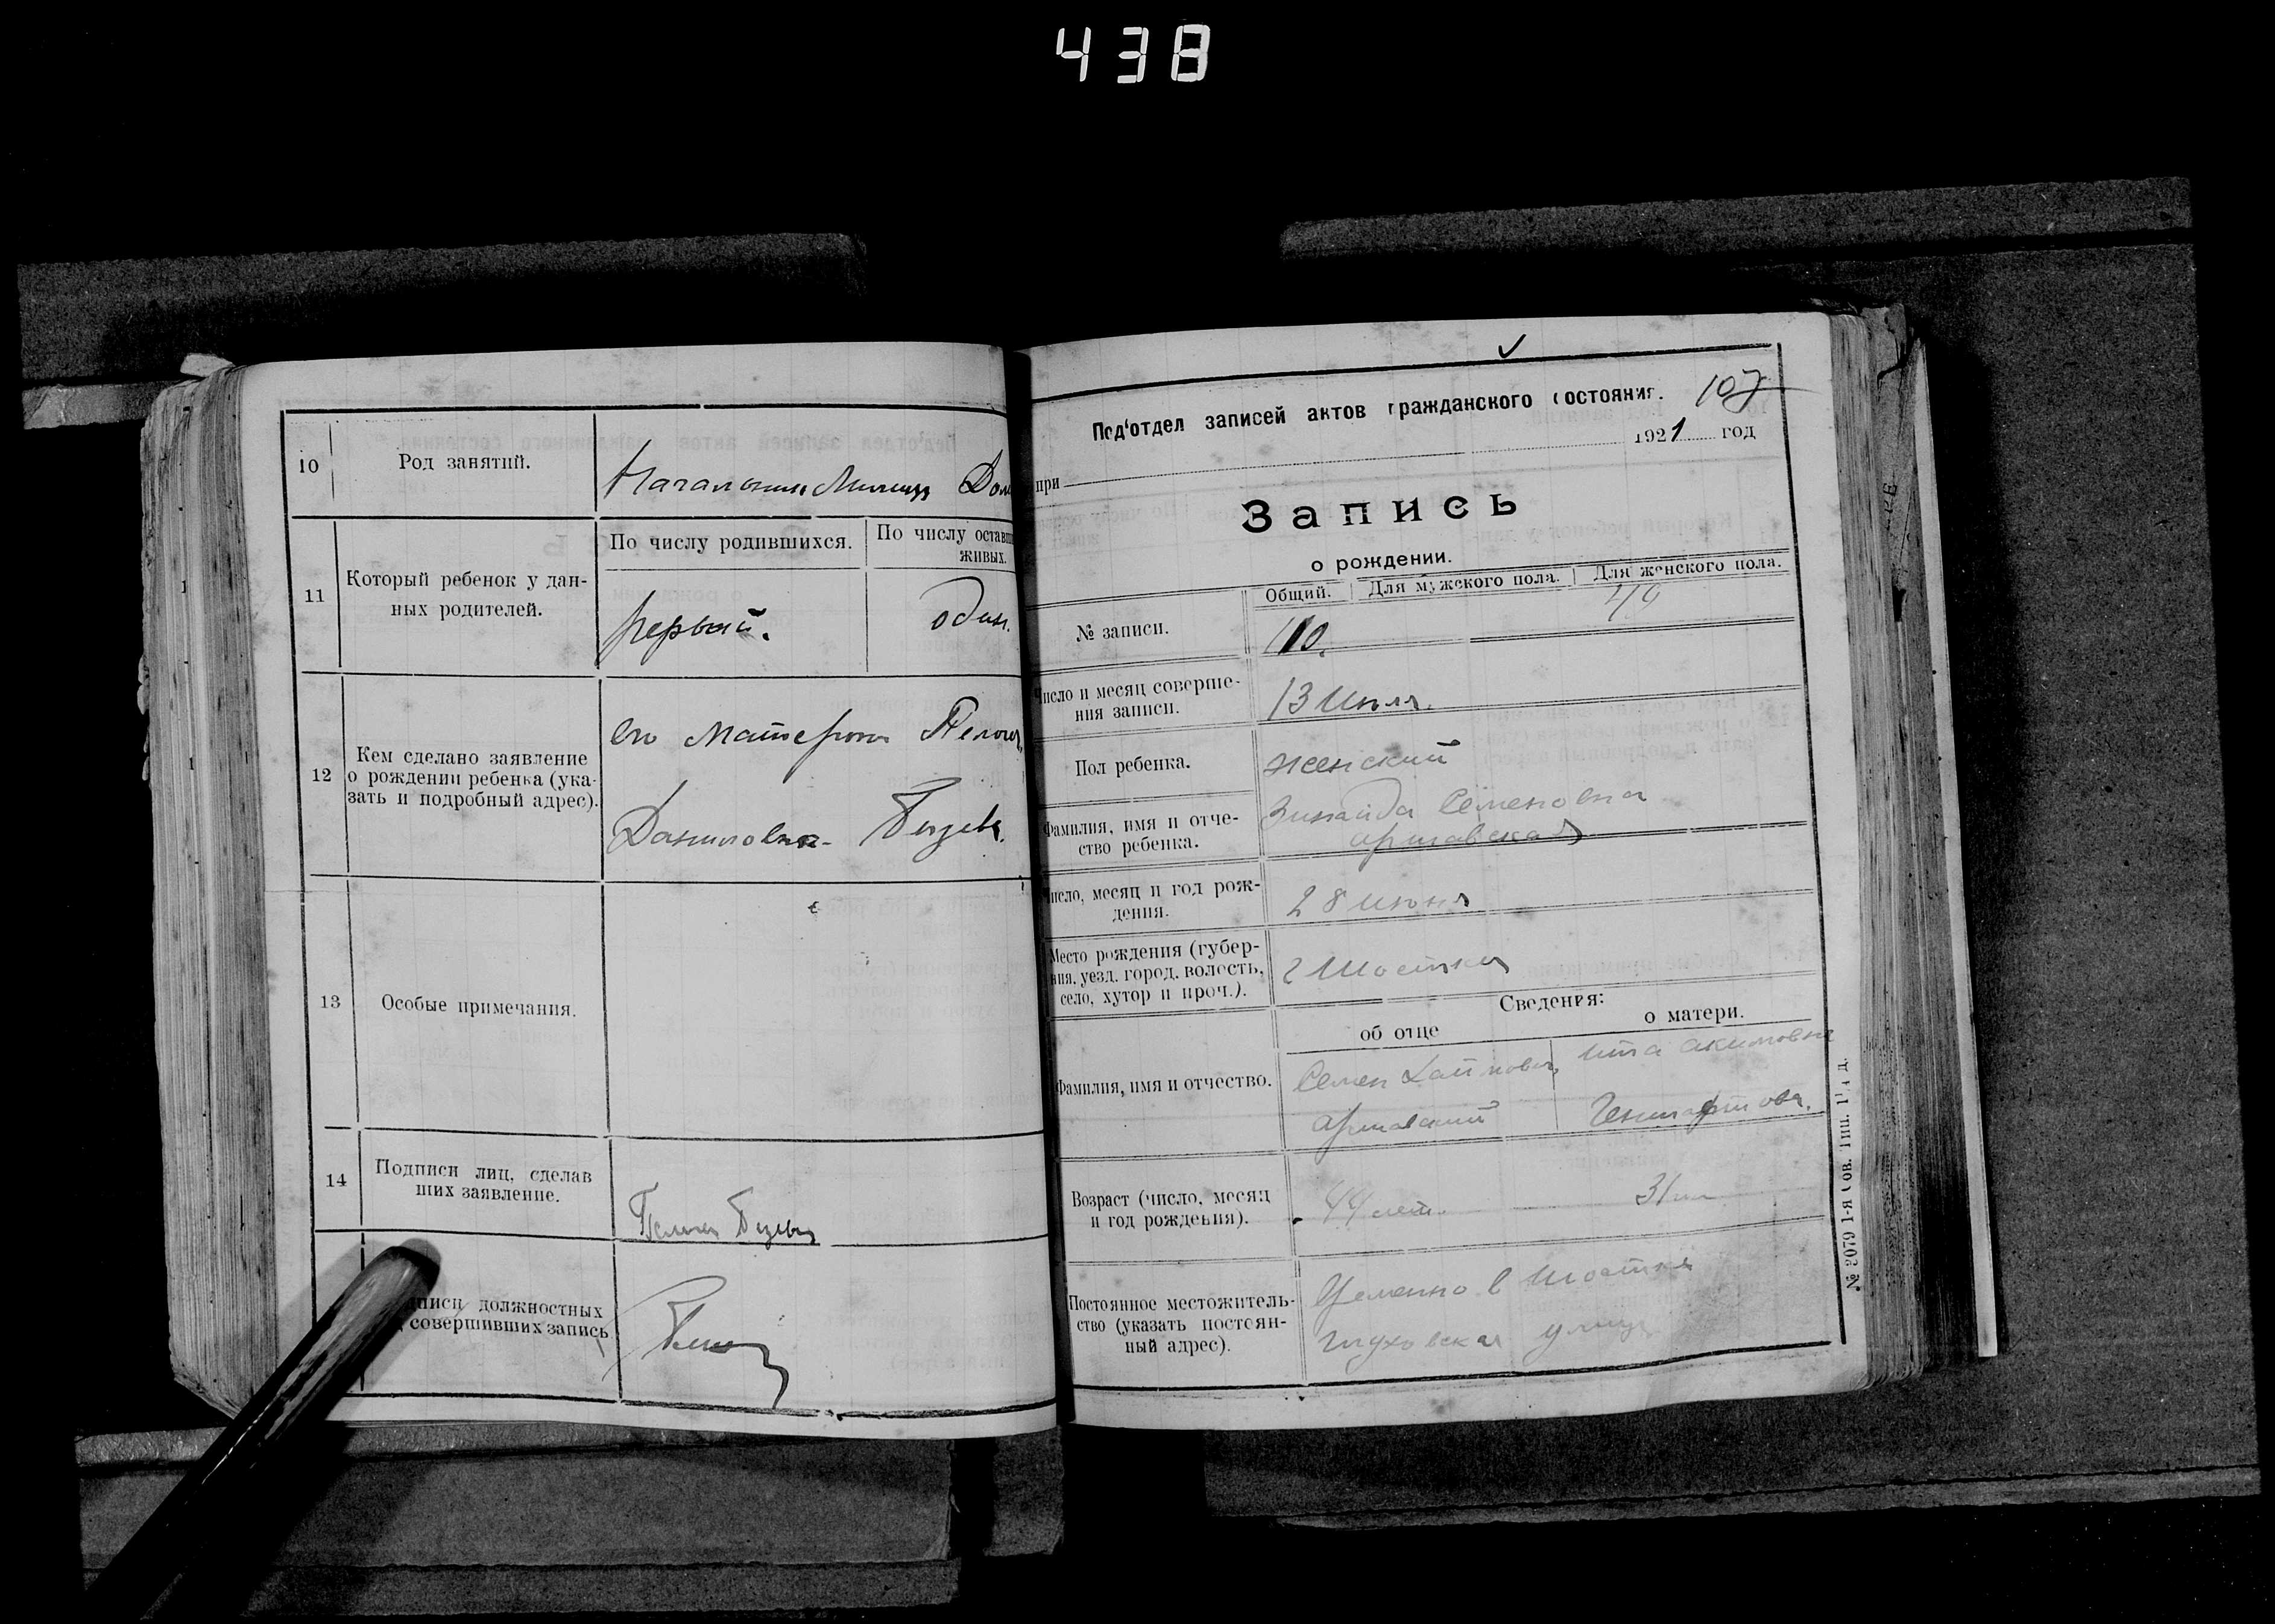 438
10
Род занятий.
11
Который ребенок у дан-
ных родителей.
По числу родившихся.
По числу остав
живых.
первый.
один.
12
Кем сделано заявление
о рождении ребенка (ука-
зать и подробный адрес).
его матерью
Даниловна
13
Особые примечания.
14
Подписи лиц, сделав
ших заявление.
должностных
совершивших запись
107
Под'отдел записей актов гражданского состояния.
1921 год
при
Запись
о рождении.
Общий.
Для мужского пола.
Для женского пола.
№ записи.
110.
49
Число и месяц соверше-
ния записи.
13 Июля.
Пол ребенка.
женский
Фамилия, имя и отче-
ство ребенка.
Зинаида Семеновна
Аршавская
Число, месяц и год рож-
дения.
28 июня
Место рождения (губер-
ния, уезд, город, волость,
село, хутор и проч.).
г Шостка
Сведения:
об отце
о матери.
Фамилия, имя и отчество.
Семен
Аршавский
Акимовна
Возраст (число, месяц
и год рождения).
44 лет.
31
Постоянное местожитель-
ство (указать постоян-
ный адрес).
в Шостке
Глуховская улица
№ 2079 1-я Сов. Тип.